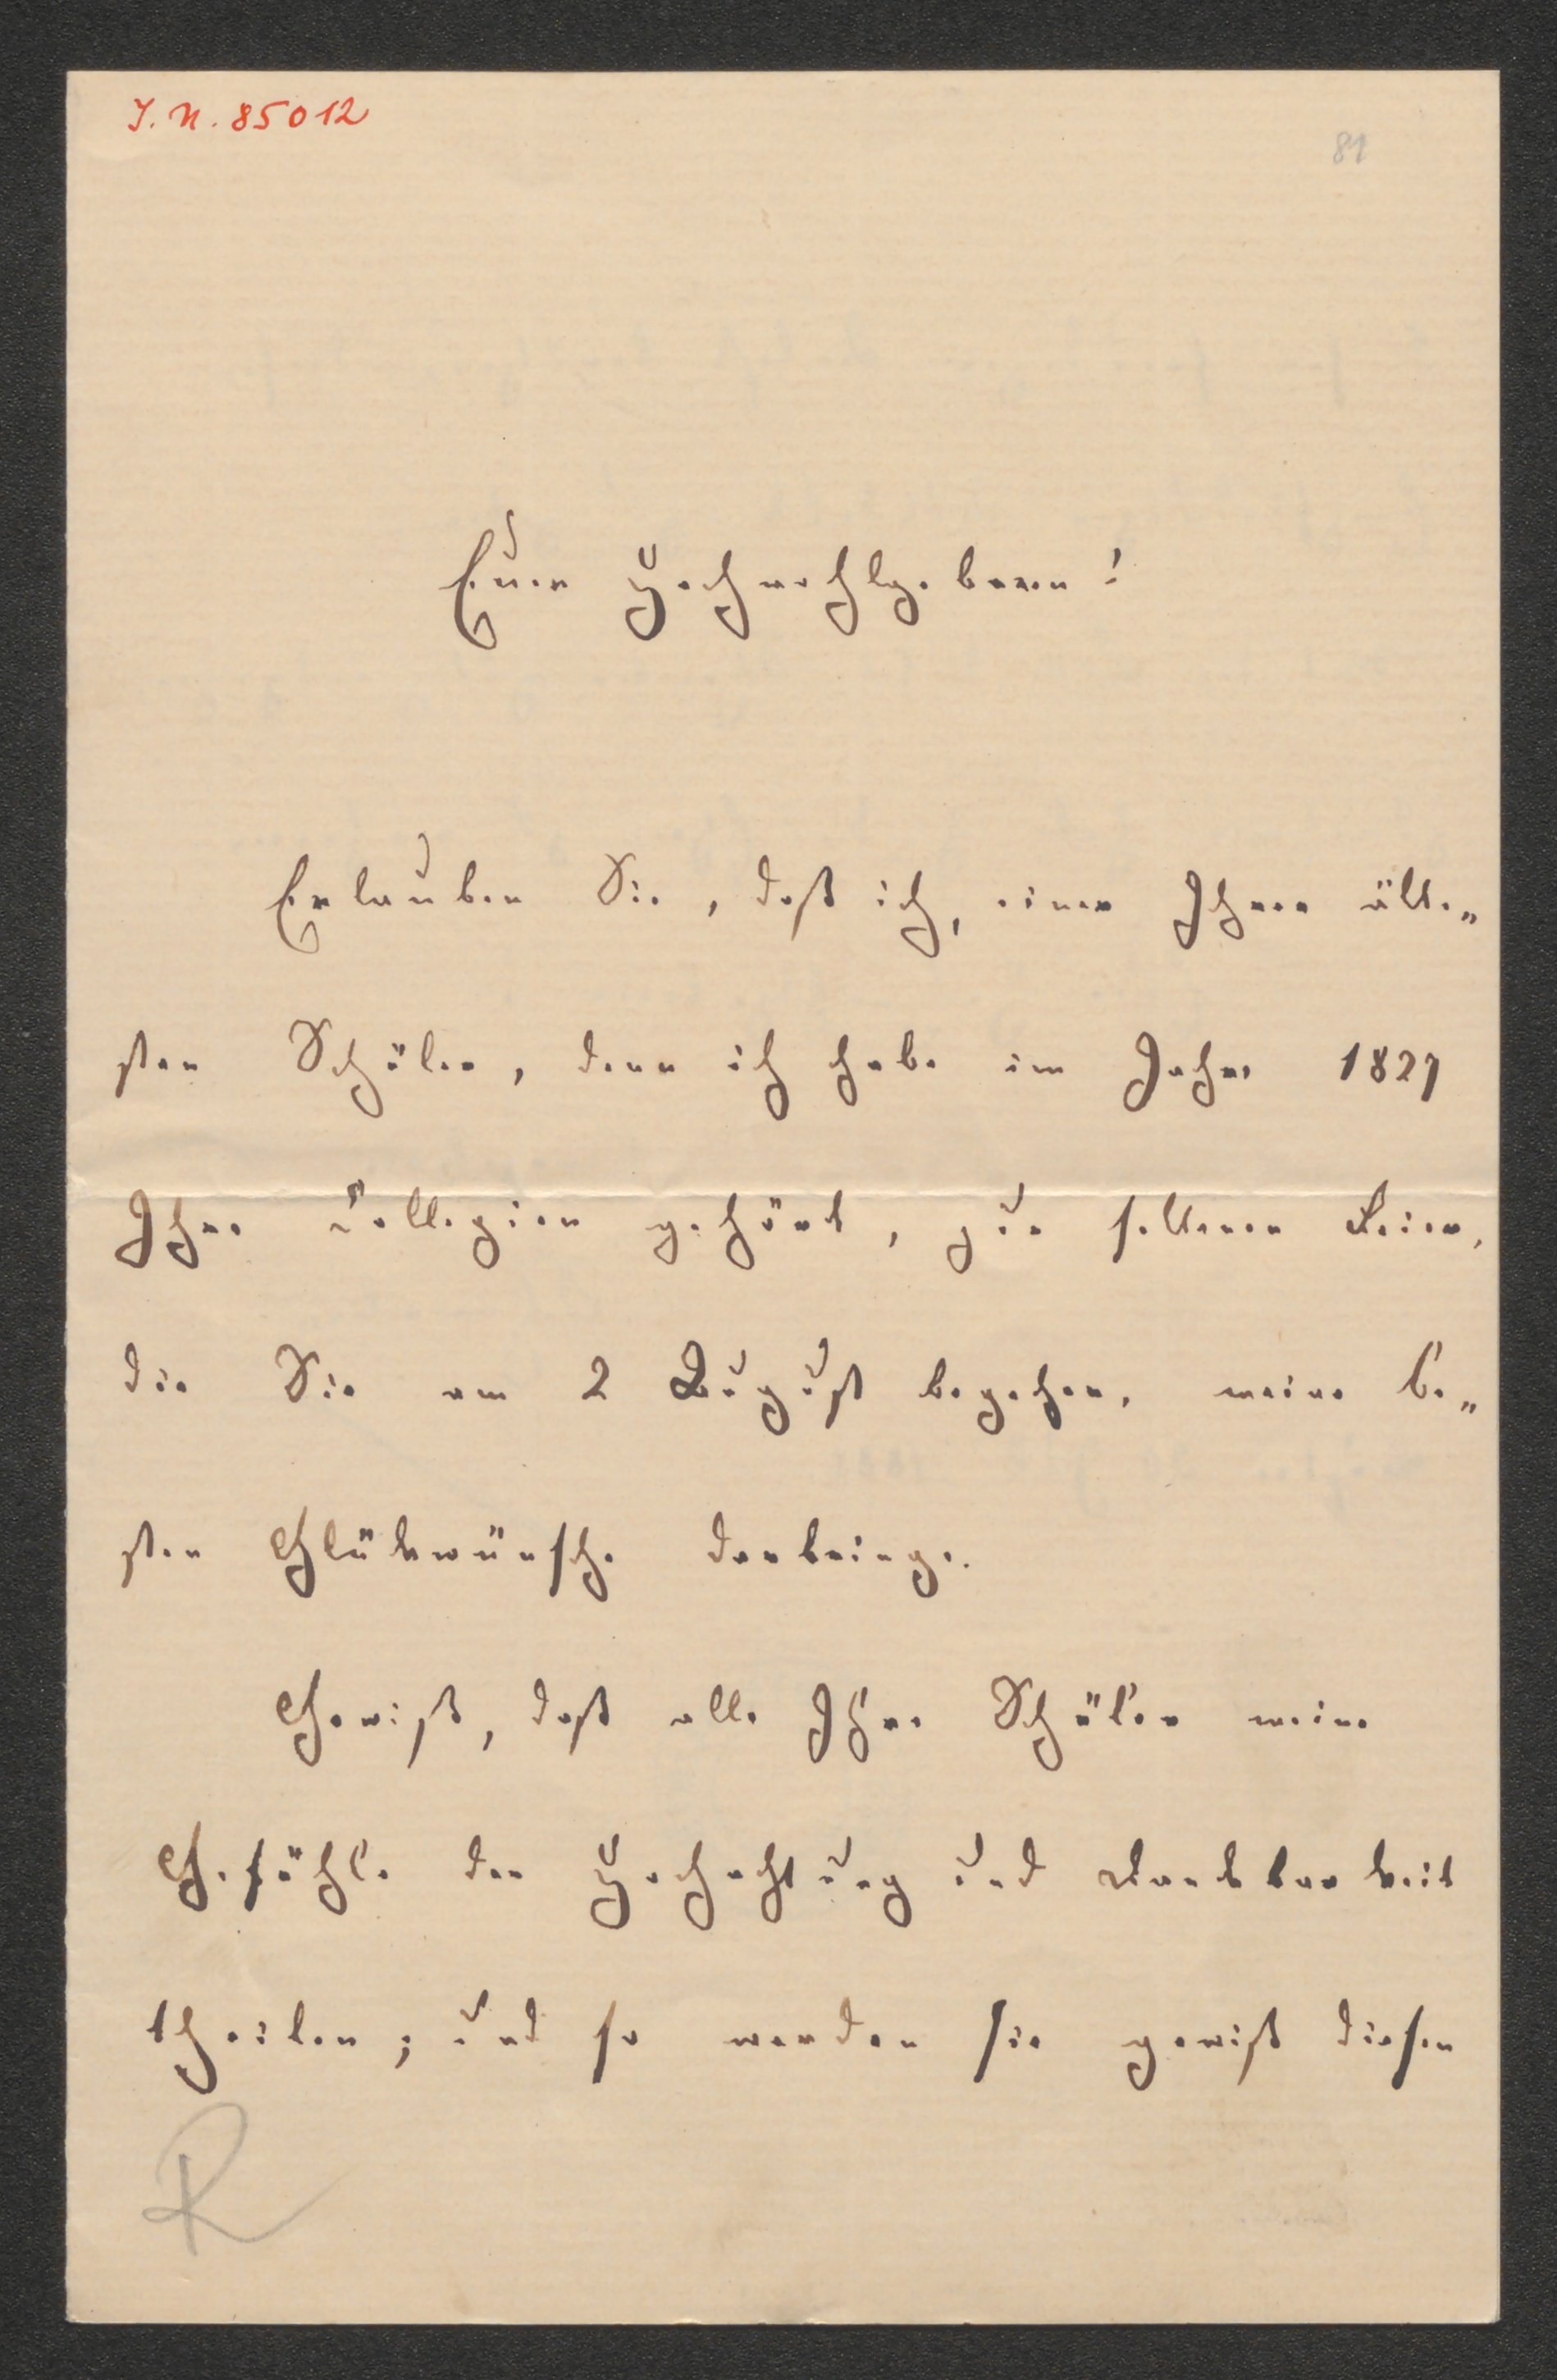 J. N. 85012
81
Euer Hochwohlgeboren!
Erlauben Sie, daß ich, einer Ihrer älte„
sten Schüler, denn ich habe im Jahre 1827
Ihre Collegien gehört, zur seltenen Feier,
die Sie am 2 August begehen, meine be„
sten Glükwünsche darbringe.
Gewiß, daß alle Ihre Schüler meine
Gefühle der Hochachtung und Dankbarkeit
theilen; und so werden sie gewiß diesen
R